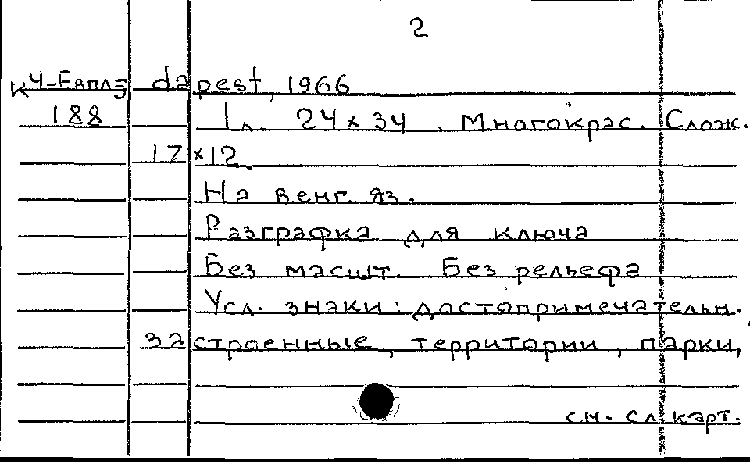 2
К4-Еапл5 dapest, 1966
188 1 л. 24×34. Многокрас. Слож.
17×12.
На венг. яз.
Разграфка для ключа
Без масшт. Без рельефа
Усл. знаки: достопримечательн.
застроенные, территории, парки,
см. сл. карт.